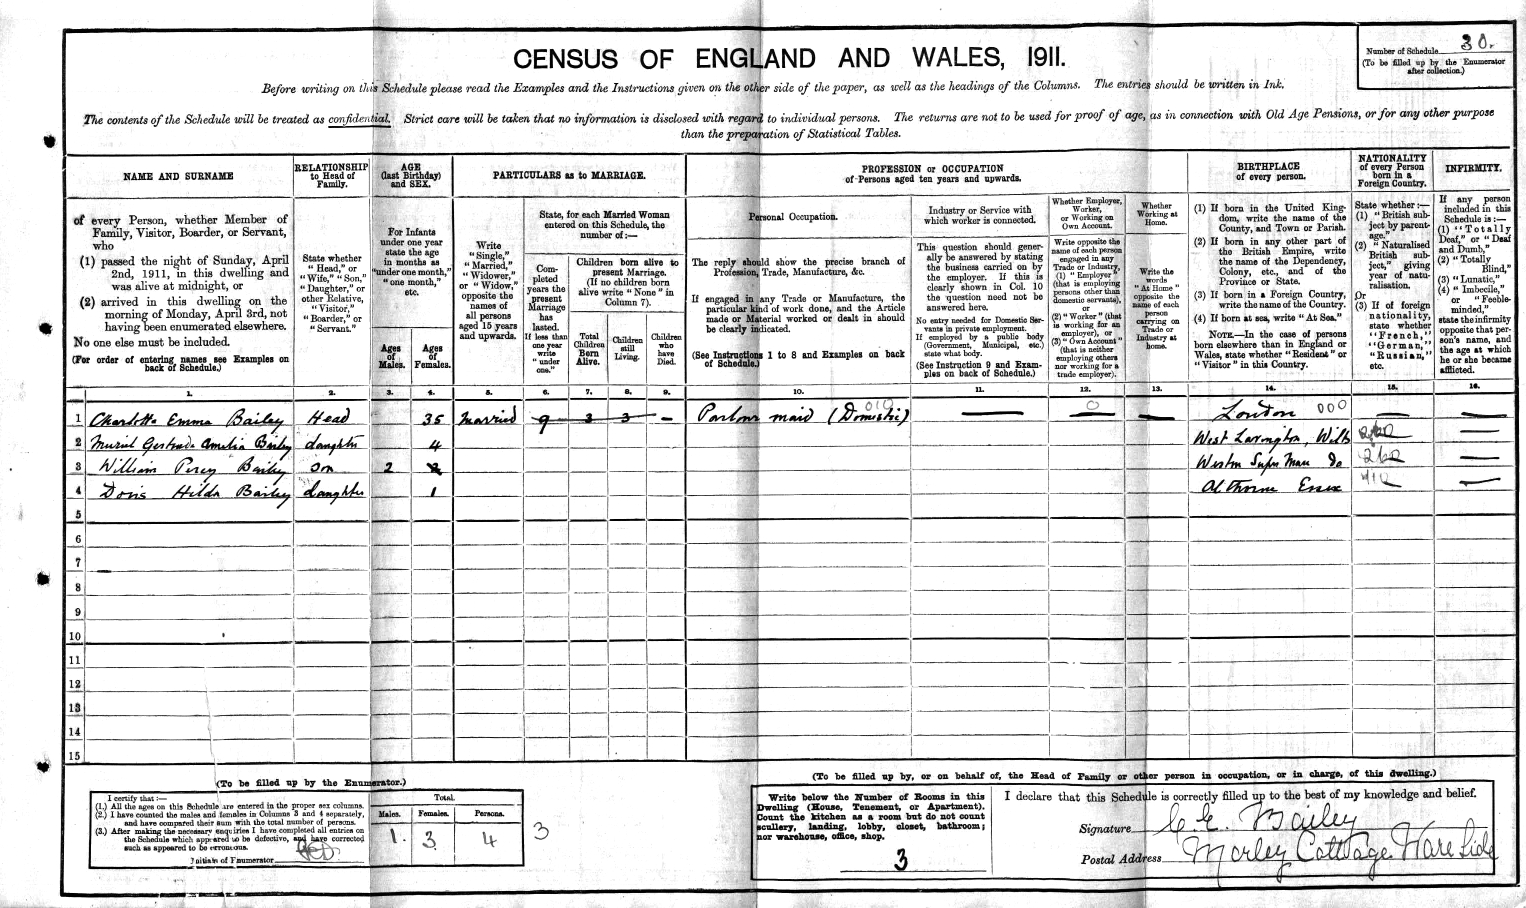 CENSUS OF ENGLAND AND WALES, 1911.
Number of Schedule 30.
(To be filled up by the Enumerator
after collection.)
Before writing on this Schedule please read the Examples and the Instructions given on the other side of the paper, as well as the headings of the Columns. The entries should be written in Ink.
The contents of the Schedule will be treated as confidential. Strict care will be taken that no information is disclosed with regard to individual persons. The returns are not to be used for proof of age, as in connection with Old Age Pensions, or for any other purpose
than the preparation of Statistical Tables.
NAME AND SURNAME
of every Person, whether Member of
Family, Visitor, Boarder, or Servant,
who
(1) passed the night of Sunday, April
2nd, 1911, in this dwelling and
was alive at midnight, or
(2) arrived in this dwelling on the
morning of Monday, April 3rd, not
having been enumerated elsewhere.
No one else must be included.
(For order of entering names see Examples on
back of Schedule.)
RELATIONSHIP
to Head of
Family.
State whether
"Head," or
"Wife," "Son,"
"Daughter," or
other Relative,
"Visitor,"
"Boarder," or
"Servant."
AGE
(last Birthday)
and SEX.
For Infants
under one year
state the age
in months as
"under one month,"
"one month,"
etc.
Ages
of
Males.
Ages
of
Females.
PARTICULARS as to MARRIAGE.
Write
"Single,"
"Married,"
"Widower,"
or "Widow,"
opposite the
names of
all persons
aged 15 years
and upwards.
State, for each Married Woman
entered on this Schedule, the
number of:—
Com-
pleted
years the
present
Marriage
has
lasted.
If less than
one year
write
"under
one."
Children born alive to
present Marriage.
(If no children born
alive write "None" in
Column 7).
Total
Children
Born
Alive.
Children
still
Living.
Children
who
have
Died.
PROFESSION or OCCUPATION
of Persons aged ten years and upwards.
Personal Occupation.
The reply should show the precise branch of
Profession, Trade, Manufacture, &c.
If engaged in any Trade or Manufacture, the
particular kind of work done, and the Article
made or Material worked or dealt in should
be clearly indicated.
(See Instructions 1 to 8 and Examples on back
of Schedule.)
Industry or Service with
which worker is connected.
This question should gener-
ally be answered by stating
the business carried on by
the employer. If this is
clearly shown in Col. 10
the question need not be
answered here.
No entry needed for Domestic Ser-
vants in private employment.
If employed by a public body
(Government, Municipal, etc.)
state what body.
(See Instruction 9 and Exam-
ples on back of Schedule.)
Whether Employer,
Worker,
or Working on
Own Account.
Write opposite the
name of each person
engaged in any
Trade or Industry,
(1) "Employer"
(that is employing
persons other than
domestic servants),
or
(2) "Worker" (that
is working for an
employer), or
(3) "Own Account"
(that is neither
employing others
nor working for a
trade employer).
Whether
Working at
Home.
Write the
words
"At Home"
opposite the
name of each
person
carrying on
Trade or
Industry at
home.
BIRTHPLACE
of every person.
(1) If born in the United King-
dom, write the name of the
County, and Town or Parish.
(2) If born in any other part of
the British Empire, write
the name of the Dependency,
Colony, etc., and of the
Province or State.
(3) If born in a Foreign Country,
write the name of the Country.
(4) If born at sea, write "At Sea."
NOTE.—In the case of persons
born elsewhere than in England or
Wales, state whether "Resident" or
"Visitor" in this Country.
NATIONALITY
of every Person
born in a
Foreign Country.
State whether:—
(1) "British sub-
ject by parent-
age."
(2) "Naturalised
British sub-
ject," giving
year of natu-
ralisation.
Or
(3) If of foreign
nationality,
state whether
"French,"
"German,"
"Russian,"
etc.
INFIRMITY.
If any person
included in this
Schedule is:—
(1) "Totally
Deaf," or "Deaf
and Dumb,"
(2) "Totally
Blind,"
(3) "Lunatic,"
(4) "Imbecile,"
or "Feeble-
minded,"
state the infirmity
opposite that per-
son's name, and
the age at which
he or she became
afflicted.
1. 2. 3. 4. 5. 6. 7. 8. 9. 10. 11. 12. 13. 14. 15. 16.
1 Charlotte Emma Bailey Head 35 Married 9 3 3 — Parlour maid (Domestic) — — — London 000 — —
2 Muriel Gertrude Amelia Bailey daughter 4 West Lavington, Wilts —
3 William Percy Bailey Son 2 Weston Super Mare do 260 —
4 Doris Hilda Bailey daughter 1 Althorne Essex —
5
6
7
8
9
10
11
12
13
14
15
(To be filled up by the Enumerator.)
I certify that:—
(1.) All the ages on this Schedule are entered in the proper sex columns.
(2.) I have counted the males and females in Columns 3 and 4 separately,
and have compared their sum with the total number of persons.
(3.) After making the necessary enquiries I have completed all entries on
the Schedule which appeared to be defective, and have corrected
such as appeared to be erroneous.
Initials of Enumerator
Total.
Males. Females. Persons.
1. 3. 4 3
(To be filled up by, or on behalf of, the Head of Family or other person in occupation, or in charge, of this dwelling.)
Write below the Number of Rooms in this
Dwelling (House, Tenement, or Apartment).
Count the kitchen as a room but do not count
scullery, landing, lobby, closet, bathroom;
nor warehouse, office, shop.
3
I declare that this Schedule is correctly filled up to the best of my knowledge and belief.
Signature C. E. Bailey
Postal Address Morley Cottage Ware Side